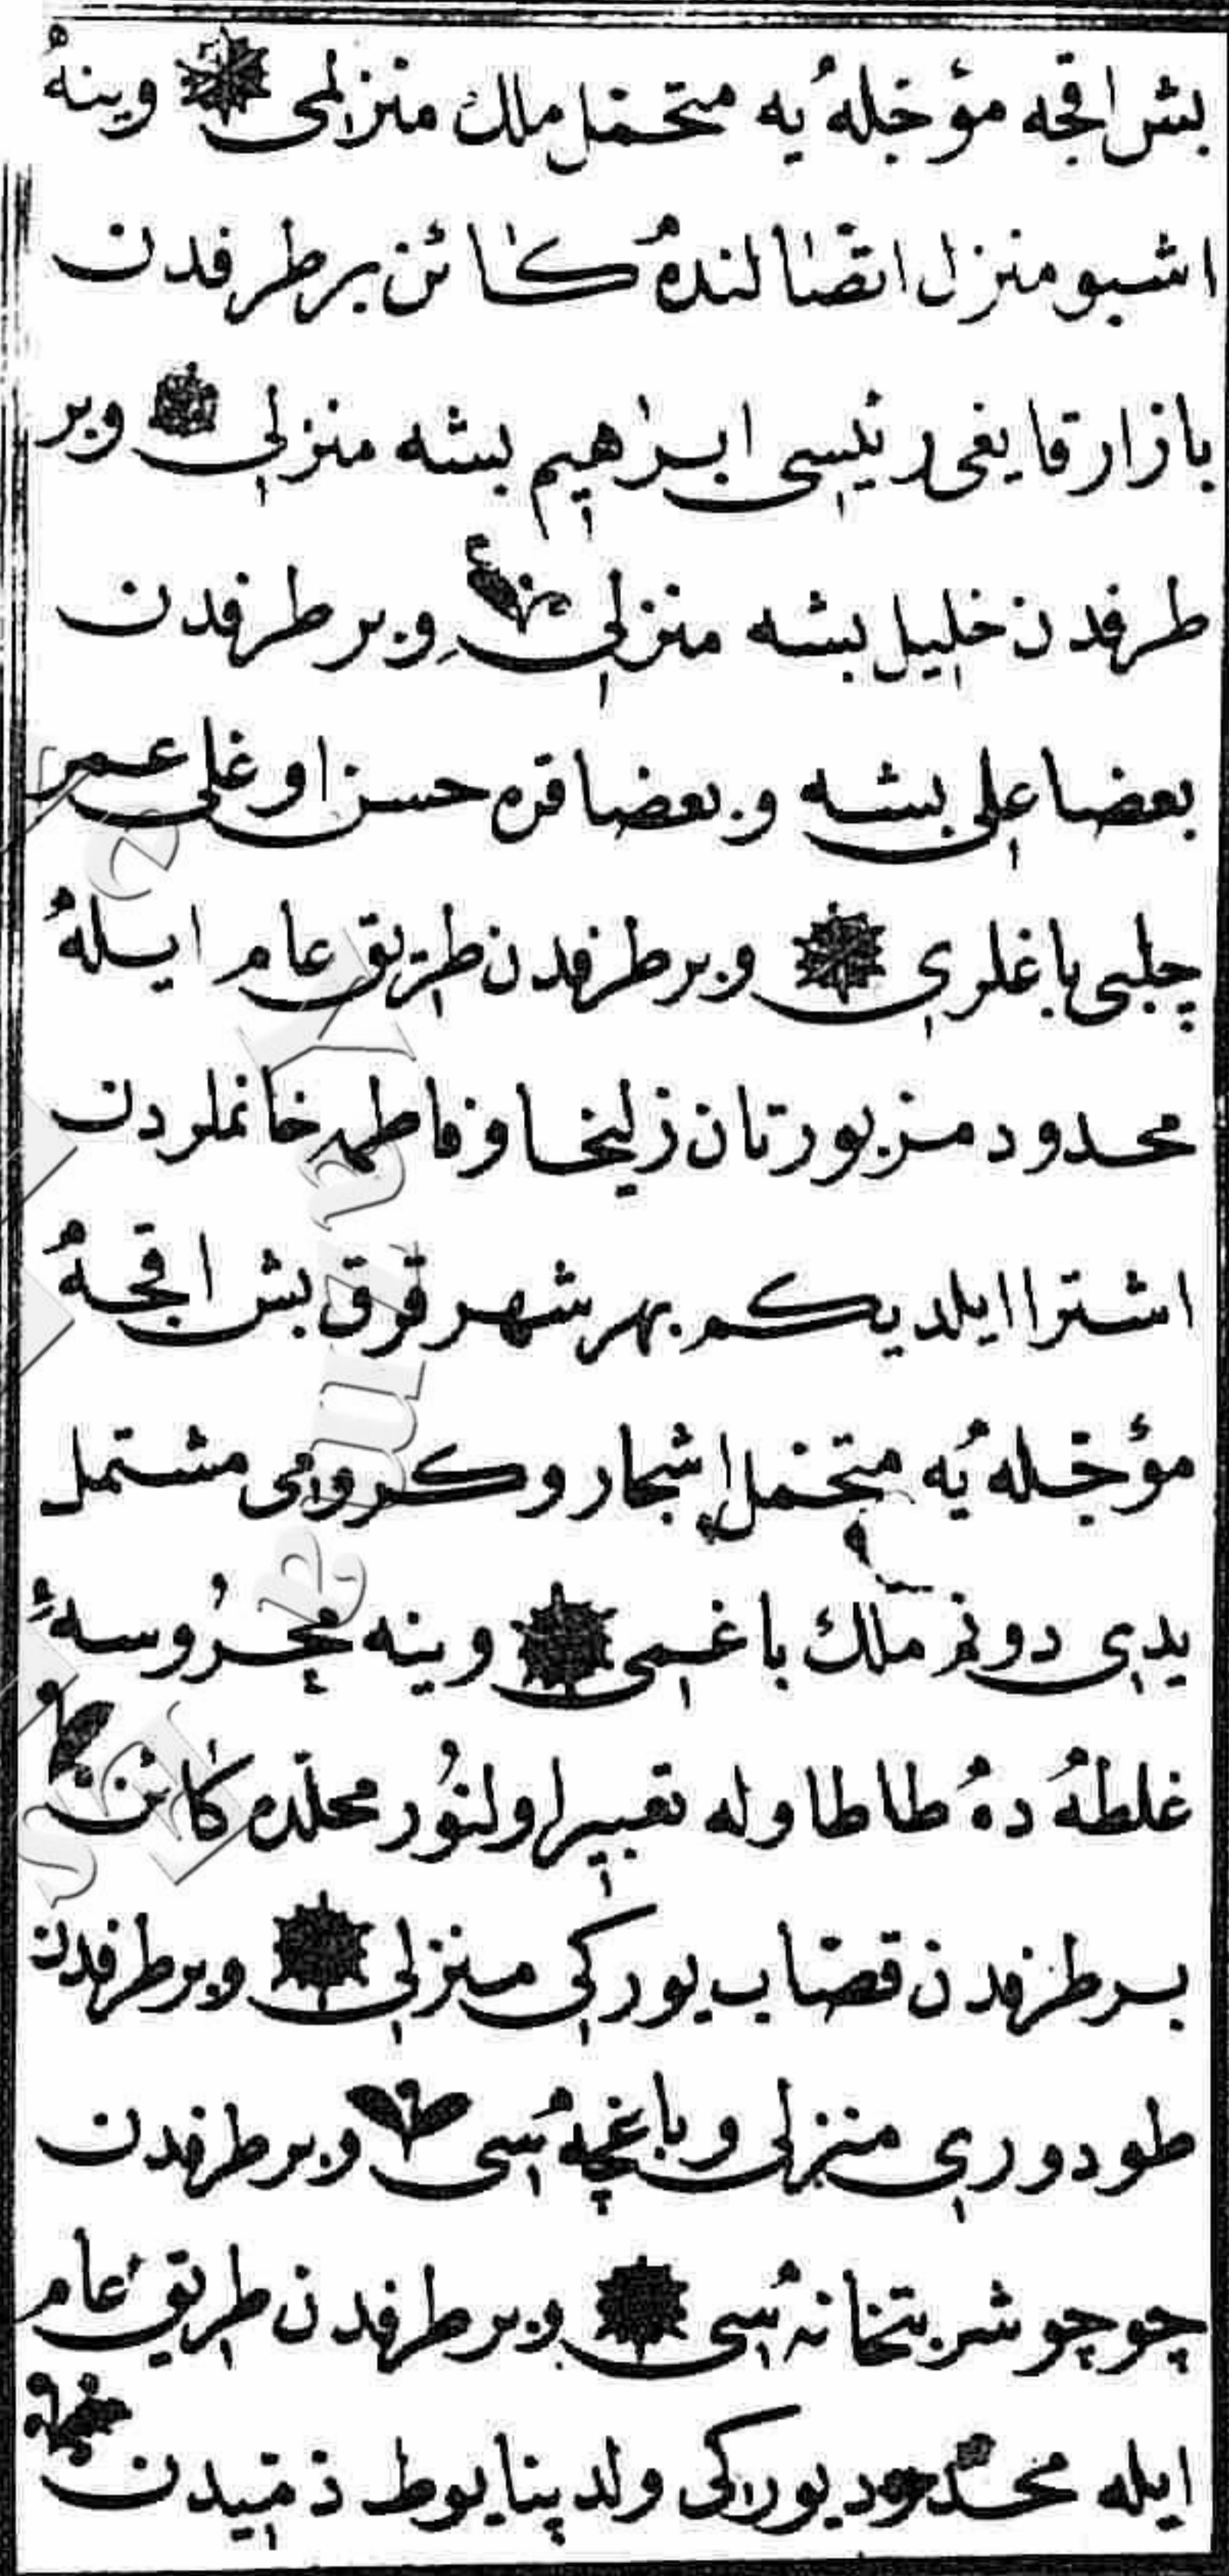 بش اقچه مؤجله یه متحمل ملك منزلمی وینه
اشبو منزل اتصالنده كائن بر طرفدن
بازار قایغی رئیسی ابراهیم بشه منزلی وبر
طرفدن خلیل بشه منزلی وبر طرفدن
بعضا علی بشه وبعضا قره حسن اوغلی عمر
چلبی باغلری وبر طرفدن طریق عام ایله
محدود مزبورتان زلیخا وفاطمه خانملردن
اشترا ایلدیكم بهر شهر قرق بش اقچه
مؤجله یه متحمل اشجار وكرومی مشتمل
یدی دونم ملك باغمی وینه محروسهٔ
غلطه ده طاطاوله تعبیر اولنور محلده كائن
بر طرفدن قصاب یوركی منزلی وبر طرفدن
طودوری منزلی وباغچه سی وبر طرفدن
چوچو شربتخانه سی وبر طرفدن طریق عام
ایله محدود یوركی ولد پنایوط ذمیدن